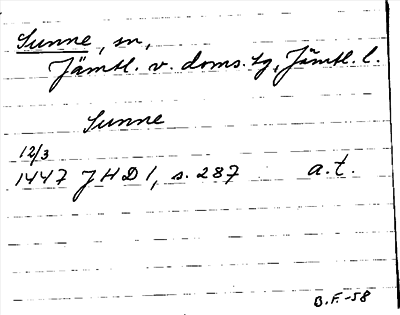 Sunne, sn,
Jämtl. v. doms. tg, Jämtl. l.
Sunne
12/3
1447 JHD 1, s. 287 a.t.
B.F.-58